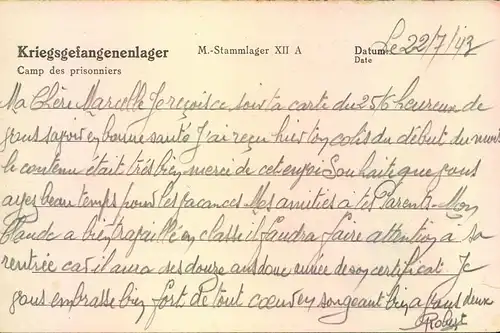 Kriegsgefangenenlager M.-Stammlager XII A Datum: Le 22/7/43
Camp des prisonniers Date
Ma Chère Marcelle Je reçois ce soir ta carte du 25/6 heureux de
vous savoir en bonne santé J'ai reçu hier ton colis du début du mois
le contenu était très bien merci de cet envoi Souhaite que vous
ayez beau temps pour les vacances Mes amitiés à tes Parents. Mon
Claude a bien travaillé en classe il faudra faire attention à sa
rentrée car il aura ses douze ans donc année de son certificat. Je
vous embrasse bien fort de tout coeur en songeant bien à vous deux
Robert